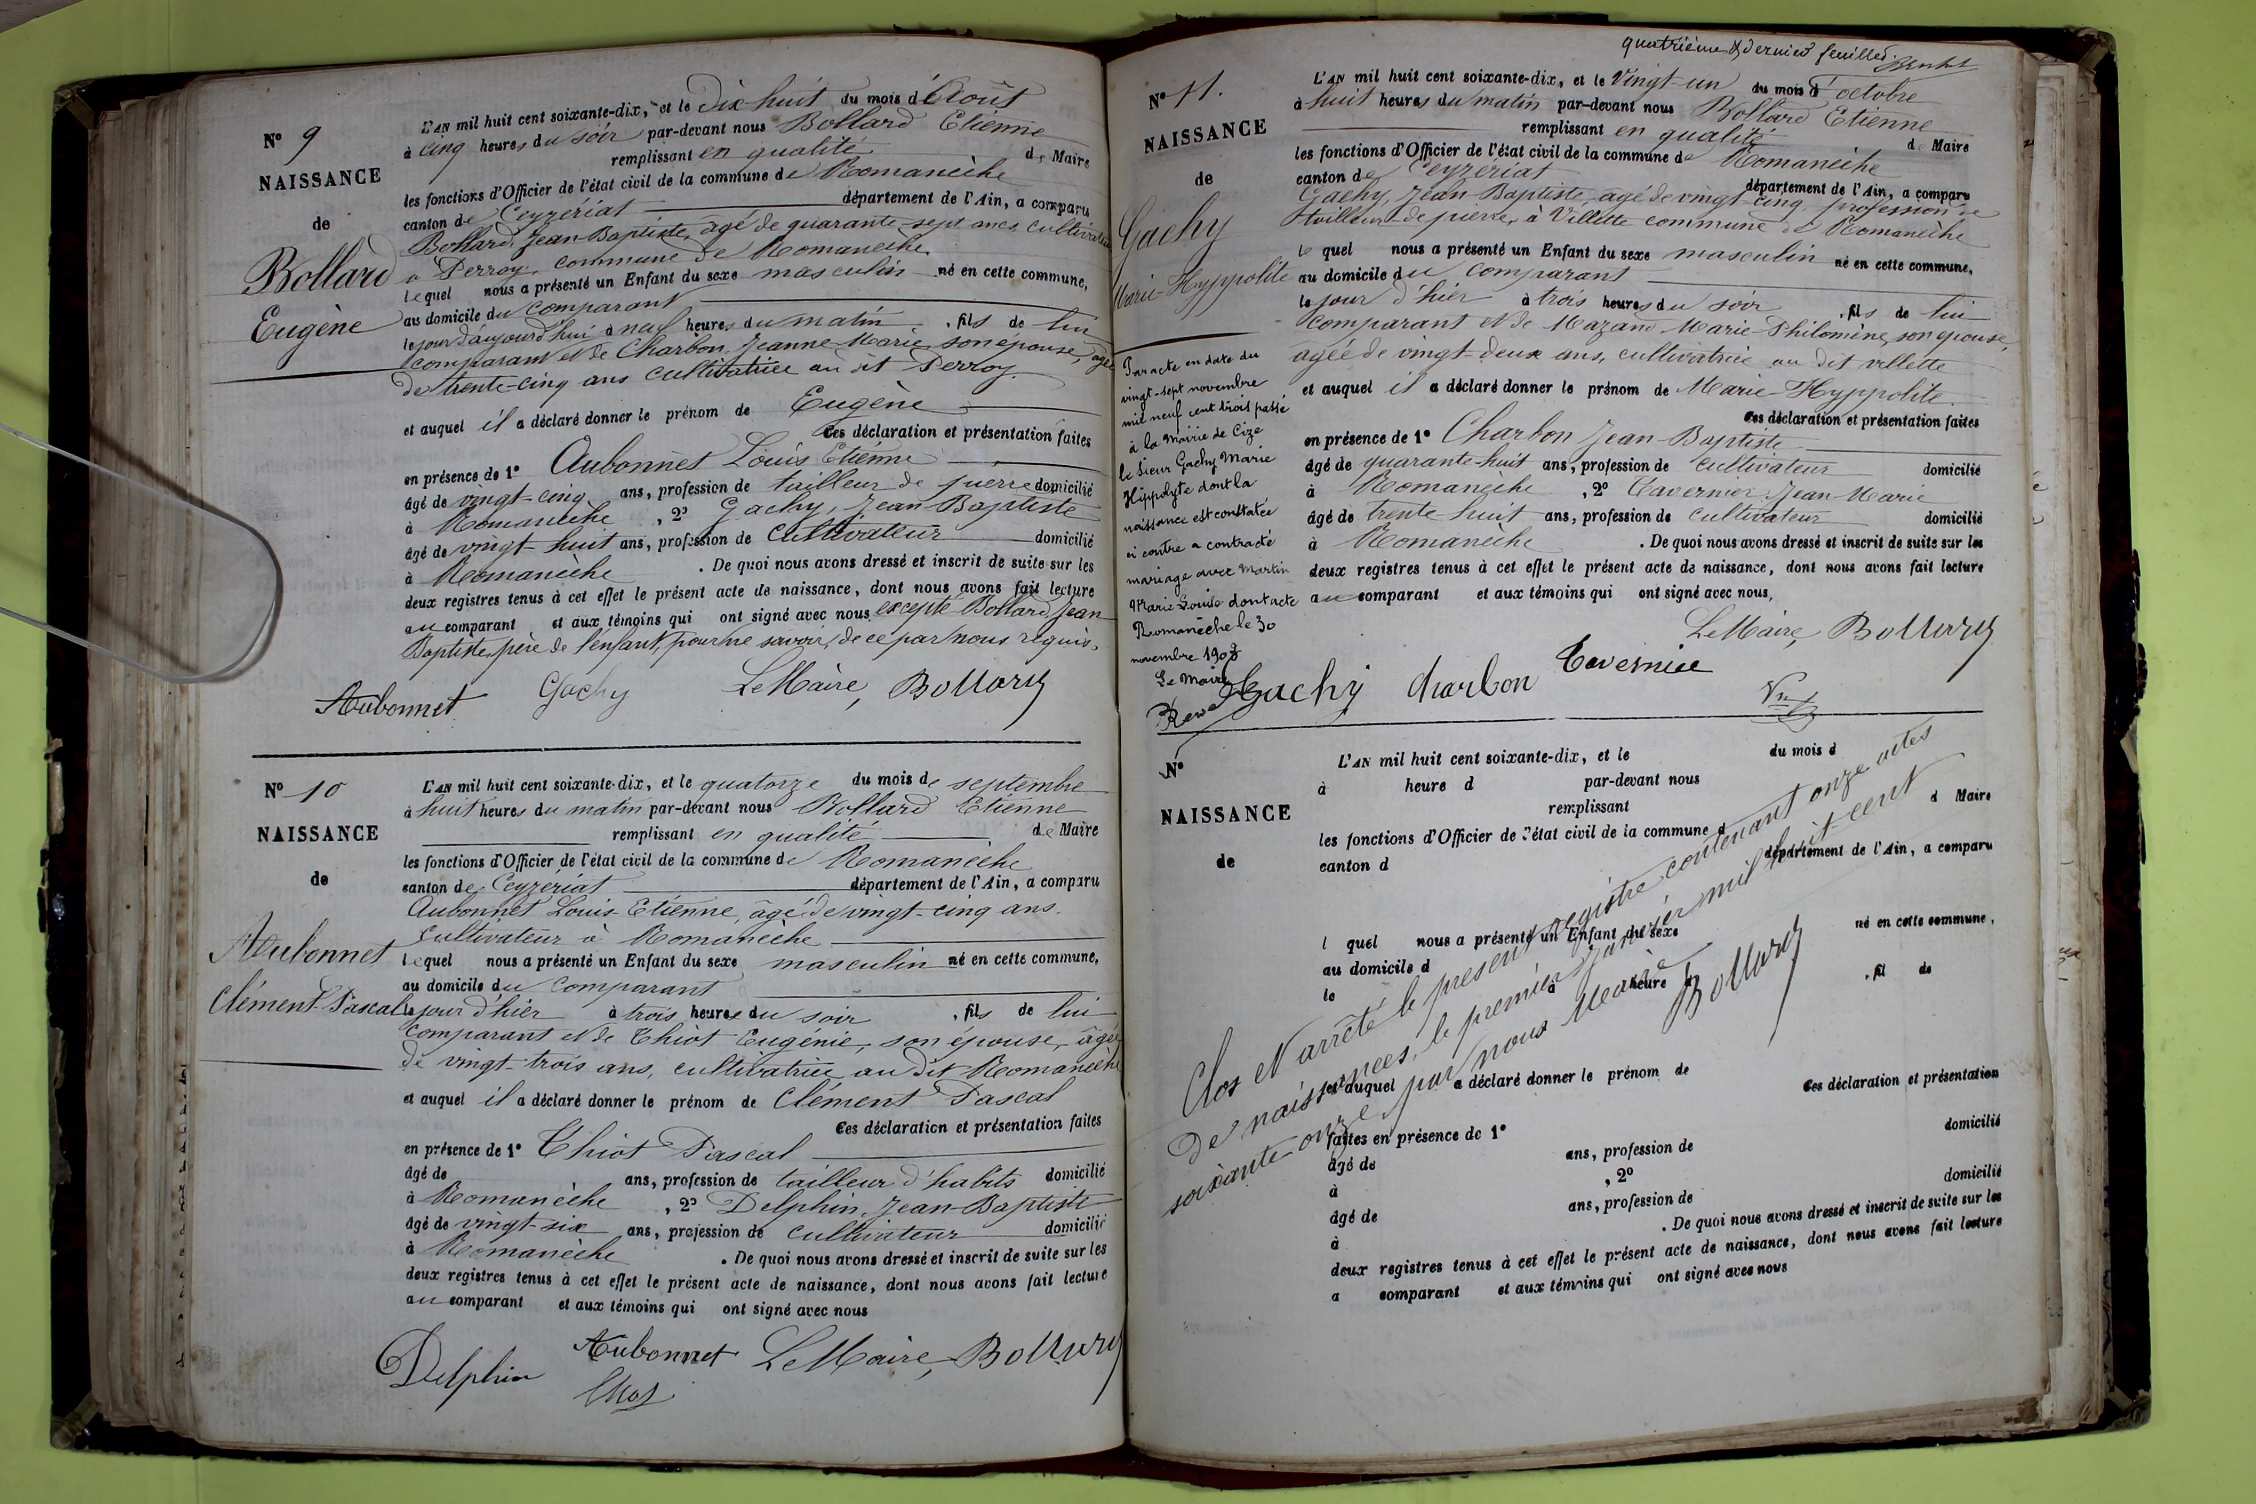 N° 9
NAISSANCE
de
Bollard
Eugène
L'AN mil huit cent soixante-dix, et le Dix huit du mois d'Août
à cinq heures du soir par-devant nous Bollard Etienne
remplissant en qualité de Maire
les fonctions d'Officier de l'état civil de la commune de Romanèche
canton de Ceyzériat département de l'Ain, a comparu
Bollard Jean-Baptiste, agé de quarante-sept ans, cultivateur
à Perroy, commune de Romanèche
lequel nous a présenté un Enfant du sexe masculin né en cette commune,
au domicile du comparant
le jour d'aujourd'hui à neuf heures du matin, fils de lui
comparant et de Charbon, Jeanne-Marie, son épouse, âgée
de trente-cinq ans cultivatrice au dit Perroy.
et auquel il a déclaré donner le prénom de Eugène
Ces déclaration et présentation faites
en présence de 1° Aubonnet Louis Etienne
âgé de vingt-cinq ans, profession de tailleur de pierre domicilié
à Romanèche, 2° Gachy, Jean Baptiste
âgé de vingt-huit ans, profession de cultivateur domicilié
à Romanèche. De quoi nous avons dressé et inscrit de suite sur les
deux registres tenus à cet effet le présent acte de naissance, dont nous avons fait lecture
au comparant et aux témoins qui ont signé avec nous, excepté Bollard, Jean
Baptiste, père de l'enfant, pour ne savoir, de ce par nous requis.
Aubonnet Gachy Le Maire, Bollard
N° 10
NAISSANCE
de
Aubonnet
Clément-Pascal
L'AN mil huit cent soixante-dix, et le quatorze du mois de septembre
à huit heures du matin par-devant nous Bollard Etienne
remplissant en qualité de Maire
les fonctions d'Officier de l'état civil de la commune de Romanèche
canton de Ceyzériat département de l'Ain, a comparu
Aubonnet Louis-Etienne, âgé de vingt-cinq ans.
cultivateur à Romanèche
lequel nous a présenté un Enfant du sexe masculin né en cette commune,
au domicile du comparant
le jour d'hier à trois heures du soir, fils de lui
comparant et de Thiot Eugénie, son épouse, âgée
de vingt-trois ans, cultivatrice au dit Romanèche
et auquel il a déclaré donner le prénom de Clément Pascal
Ces déclaration et présentation faites
en présence de 1° Thiot Pascal
âgé de ans, profession de tailleur d'habits domicilié
à Romanèche, 2° Delphin, Jean-Baptiste
âgé de vingt-six ans, profession de cultivateur domicilié
à Romanèche. De quoi nous avons dressé et inscrit de suite sur les
deux registres tenus à cet effet le présent acte de naissance, dont nous avons fait lecture
au comparant et aux témoins qui ont signé avec nous
Delphin Aubonnet Le Maire, Bollard
quatrième & dernier feuillet
N° 11.
NAISSANCE
de
Gachy
Marie-Hyppolite
Par acte en date du
vingt-sept novembre
mil neuf cent trois passé
à la Mairie de Cize
le Sieur Gachy Marie
Hippolyte dont la
naissance est constatée
ci contre a contracté
mariage avec Martin
Marie Louise dont acte
Romanèche le 30
novembre 1903
Le Maire
L'AN mil huit cent soixante-dix, et le Vingt-un du mois d'octobre
à huit heures du matin par-devant nous Bollard Etienne
remplissant en qualité de Maire
les fonctions d'Officier de l'état civil de la commune de Romanèche
canton de Ceyzériat département de l'Ain, a comparu
Gachy, Jean Baptiste, agé de vingt-cinq, profession de
tailleur de pierre, à Villette commune de Romanèche
le quel nous a présenté un Enfant du sexe masculin né en cette commune,
au domicile du comparant
le jour d'hier à trois heures du soir, fils de lui
comparant et de Mazand Marie-Philomène, son épouse,
agée de vingt-deux ans, cultivatrice au dit villette
et auquel il a déclaré donner le prénom de Marie-Hyppolite.
Ces déclaration et présentation faites
en présence de 1° Charbon Jean-Baptiste
âgé de quarante-huit ans, profession de cultivateur domicilié
à Romanèche, 2° Tavernier Jean-Marie
âgé de trente huit ans, profession de cultivateur domicilié
à Romanèche. De quoi nous avons dressé et inscrit de suite sur les
deux registres tenus à cet effet le présent acte de naissance, dont nous avons fait lecture
au comparant et aux témoins qui ont signé avec nous,
Le Maire, Bollard
Gachy charbon Tavernier
Vu
N°
NAISSANCE
de
L'AN mil huit cent soixante-dix, et le du mois d
à heure d par-devant nous
remplissant d Maire
les fonctions d'Officier de l'état civil de la commune d
canton d département de l'Ain, a comparu
l quel nous a présenté un Enfant du sexe né en cette commune,
au domicile d
le à heure d, fil de
et auquel a déclaré donner le prénom de
Ces déclaration et présentation
faites en présence de 1° domicilié
âgé de ans, profession de
à , 2° domicilié
âgé de ans, profession de
à . De quoi nous avons dressé et inscrit de suite sur les
deux registres tenus à cet effet le présent acte de naissance, dont nous avons fait lecture
a comparant et aux témoins qui ont signé avec nous
Clos et arrêté le présent registre contenant onze actes
de naissances, le premier janvier mil huit-cent
soixante-onze, par nous Maire
Bollard